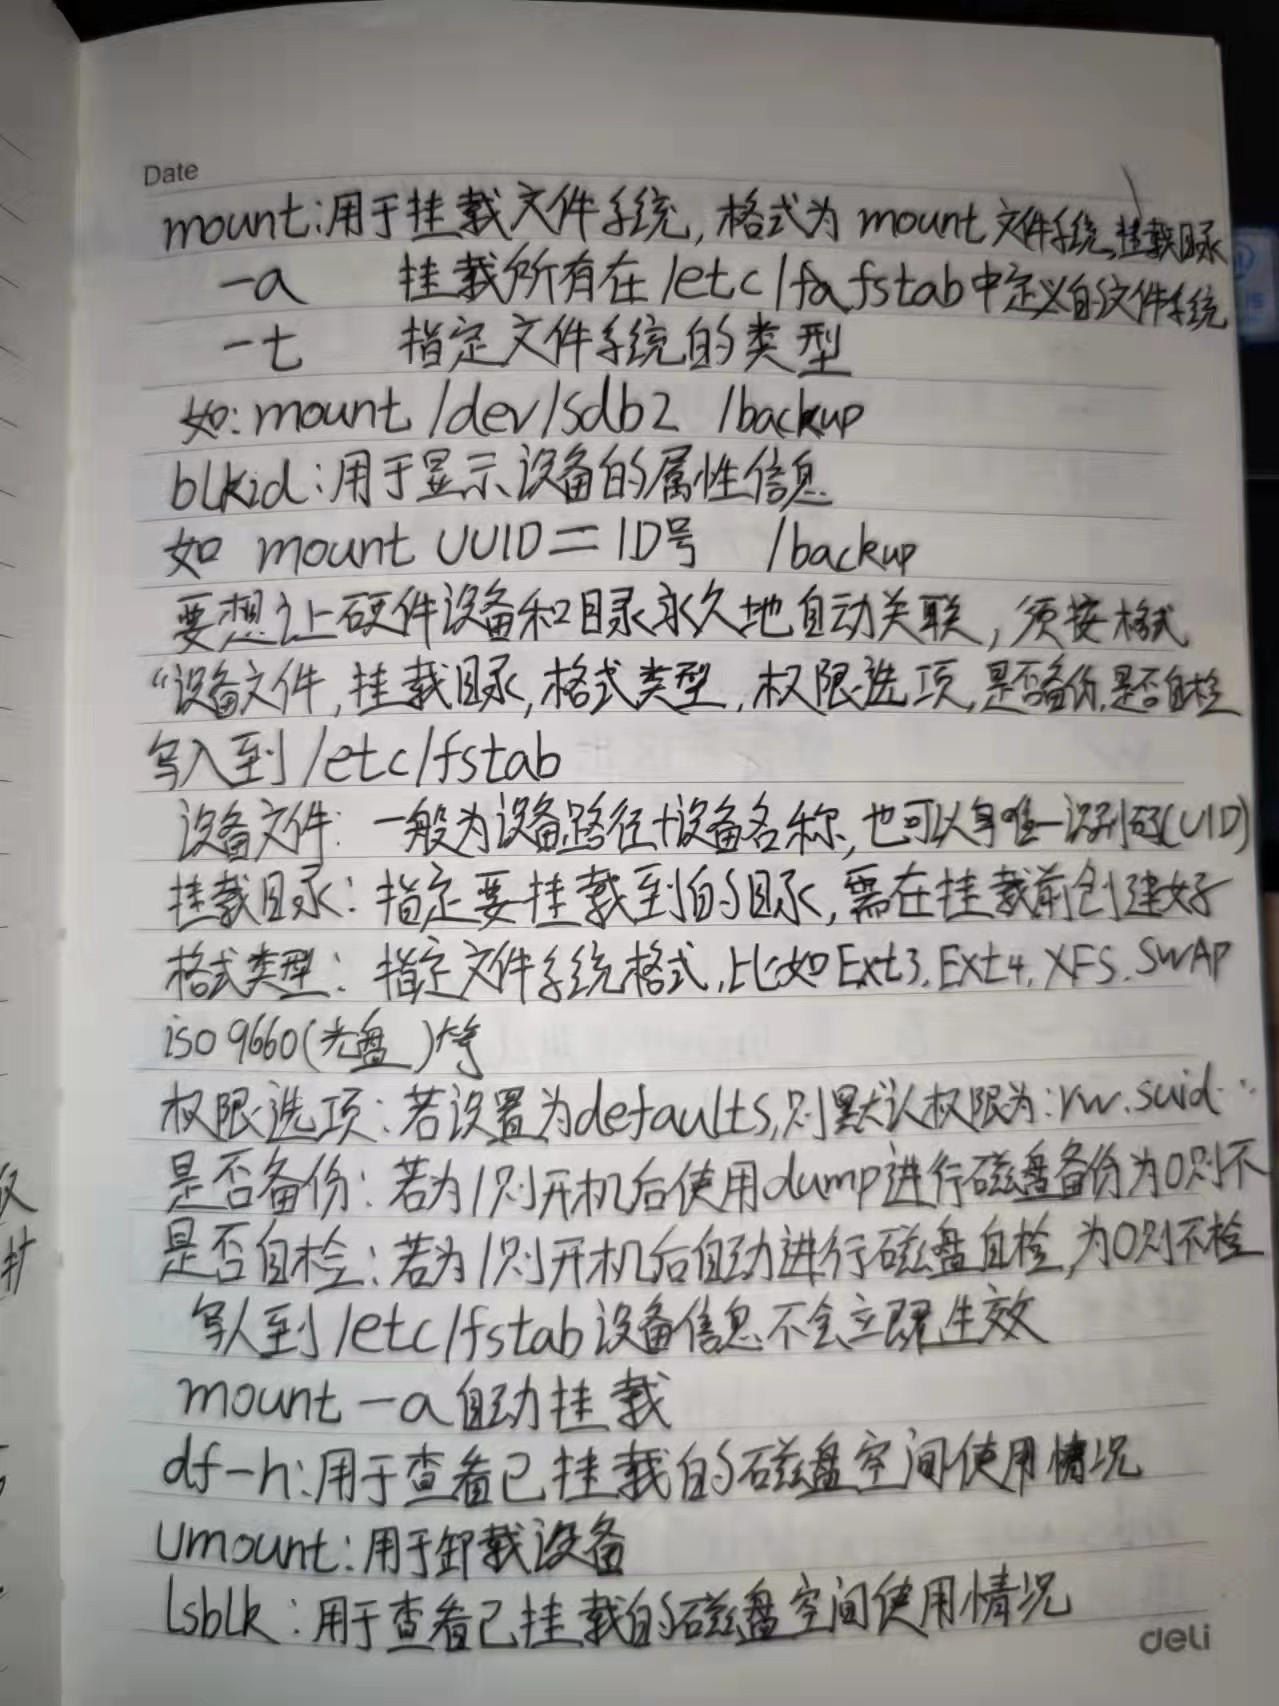 Date
mount:用于挂载文件系统,格式为 mount 文件系统 挂载目录
-a 挂载所有在/etc/fafstab中定义的文件系统
-t 指定文件系统的类型
如:mount /dev/sdb2 /backup
blkid:用于显示设备的属性信息
如 mount UUID=ID号 /backup
要想让硬件设备和目录永久地自动关联,须按格式
“设备文件,挂载目录,格式类型,权限选项,是否备份,是否自检
写入到/etc/fstab
设备文件: 一般为设备路径+设备名称,也可以写唯一识别码(UID)
挂载目录:指定要挂载到的目录,需在挂载前创建好
格式类型:指定文件系统格式,比如Ext3.Ext4.XFS.SWAP
iso9660(光盘)等
权限选项:若设置为defaults,则默认权限为:rw.suid…
是否备份:若为1则开机后使用dump进行磁盘备份为0则不
是否自检:若为1则开机后自动进行磁盘自检,为0则不检
写入到/etc/fstab设备信息不会立即生效
mount -a自动挂载
df-h:用于查看已挂载的磁盘空间使用情况
Umount:用于卸载设备
lsblk:用于查看已挂载的磁盘空间使用情况
deli